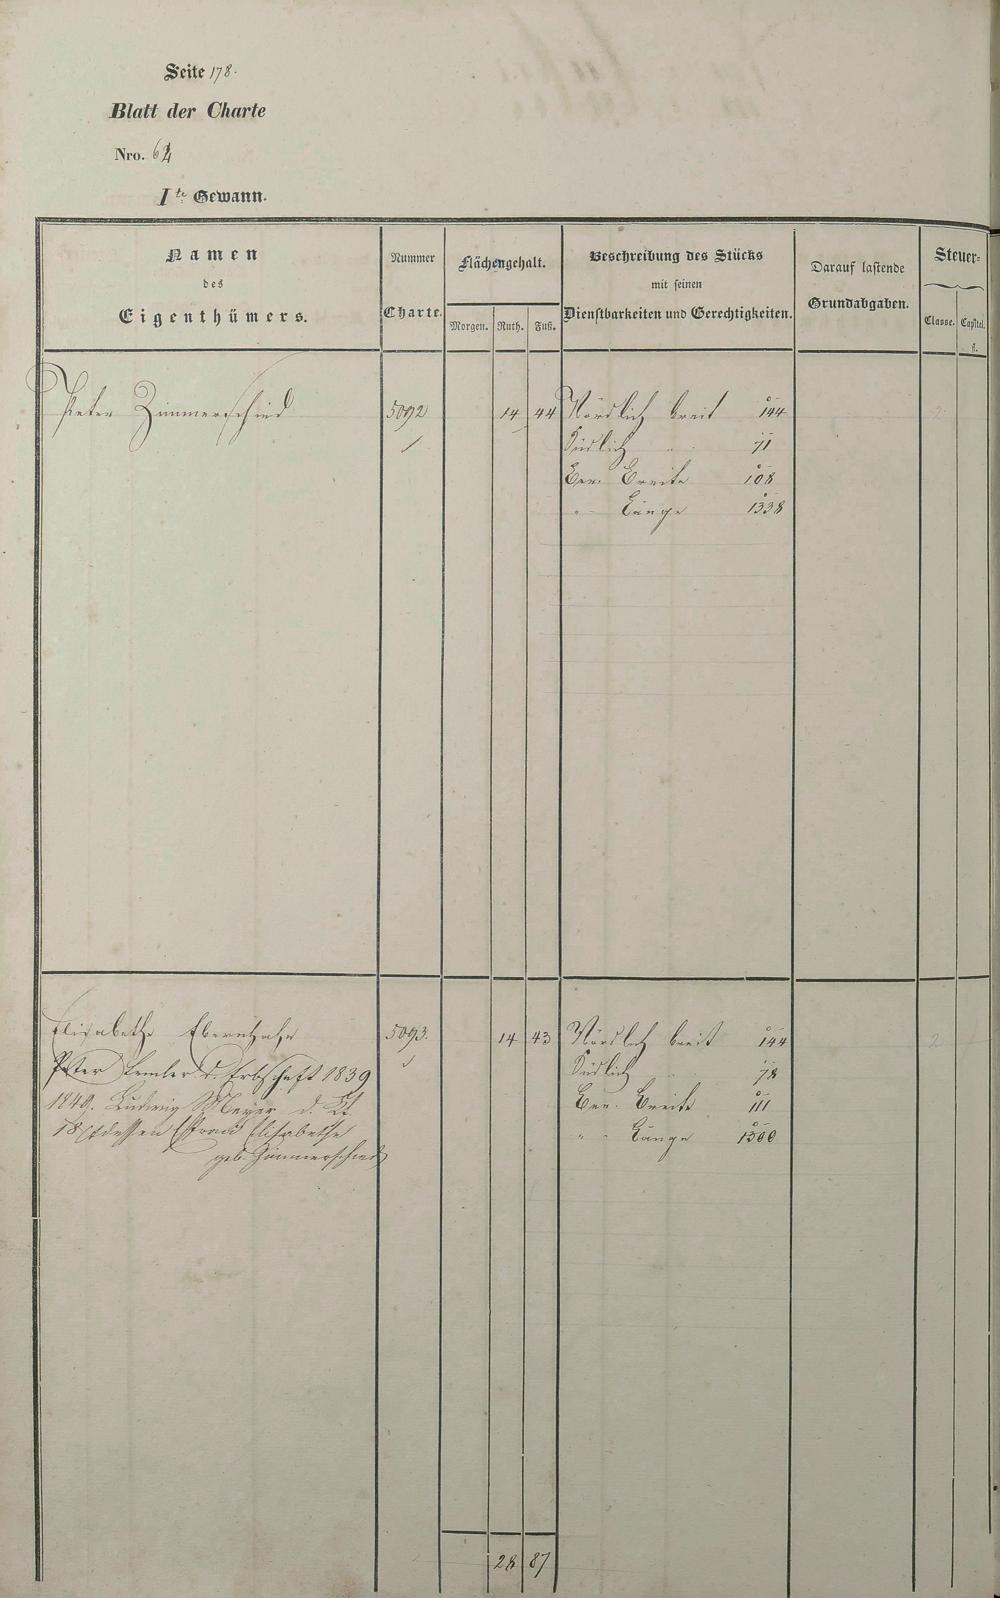 Seite 178.
Blatt der Charte
Nro. 64
I te Gewann.
Namen
des
Eigenthümers.
Nummer
Charte.
Flächengehalt.
Morgen. Ruth. Fuß.
Beschreibung des Stücks
mit seinen
Dienstbarkeiten und Gerechtigkeiten.
Darauf lastende
Grundabgaben.
Steuer-
Classe. Capital.
fl.
Peter Zimmerschied 5092 14 44 Nördlich breit 144
Südlich " 71
Ger. Breite 108
" Länge 1338
Elisabethe 5093. 14 43 Nördlich breit 144 2
Peter Lemler d. Erbschaft 1839 Südlich 78
1849. Ludwig Meyer d. Ger. Breite 111
18 dessen Ehfrau Elisabethe " Länge 1300
geb. Zimmerschied
28 87